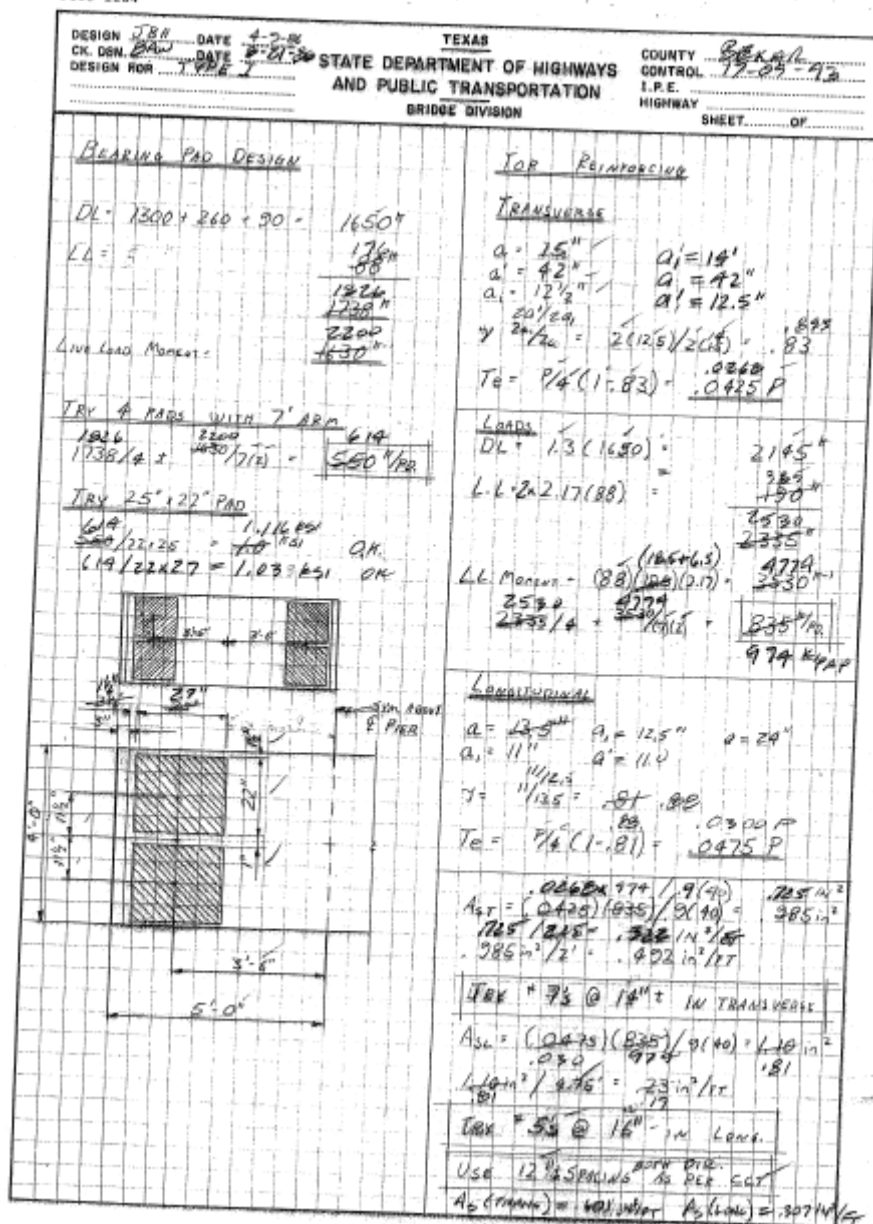 DESIGN JBH DATE 4-2-86
CK. DSN. BAW DATE
DESIGN FOR TYPE I
TEXAS
STATE DEPARTMENT OF HIGHWAYS
AND PUBLIC TRANSPORTATION
BRIDGE DIVISION
COUNTY BEXAR
CONTROL 17-09-93
I.P.E.
HIGHWAY
SHEET OF
BEARING PAD DESIGN
DL = 1300 + 260 + 90 = 1650 K
LL = 176
88 K
1826
1738 K
2200
LIVE LOAD MOMENT = 1630
TRY 4 PADS WITH 7' ARM
1826 2200 614
1738/4 ± 1630/7(2) = 550 K/PD.
TRY 25" x 22" PAD
614 1.116 KSI
550/22x25 = 1.0 KSI O.K.
614/22x27 = 1.033 KSI OK
3'-6" 3'-6"
27"
5"
SYM ABOUT
℄ PIER
22"
4'-0"
11½"
11½"
1"
3'-6"
5'-0"
TOP REINFORCING
TRANSVERSE
a = 15"
a' = 42"
a₁ = 12½"
a₁ = 14'
a = 42"
a' = 12.5"
2a'/2a₁ .893
γ = 2(12.5)/2(15) = .83
.0268
Te = P/4 (1-.83) = .0425 P
LOADS
DL = 1.3 (1650) = 2145 K
385
L.L. = 2x2.17(88) = 190 K
2530
2335 K
(18.5+6.5) 4774
LL MOMENT = (88)(2.17) = 3530 K-1
2530 4774
2335/4 + 3530/(7)(2) = 835 K/PD.
974 K/PAD
LONGITUDINAL
a = 13.5" a₁ = 12.5" a = 24"
a₁ = 11" a' = 11.0
11/12.5
γ = 11/13.5 = .81 .88
.88 .0300 P
Te = P/4 (1-.81) = .0475 P
.0268 x 974 / .9(40) .725 in²
AST = (.0425)(835)/.9(40) = .985 in²
.725 /2.25 = .322 IN²/FT
.985 in²/2' = .492 in²/FT
TRY # 7's @ 14" ± IN TRANSVERSE
ASL = (.0475)(835)/.9(40) = 1.10 in²
.030 974 .81
1.10 in² / 4.75' = .23 in²/FT
.81 .17
TRY # 5's @ 16" IN LONG.
USE 12" ± SPACING BOTH DIR. AS PER CGT
As (TRANS) = .601 in²/FT As (LONG) = .307 IN²/FT